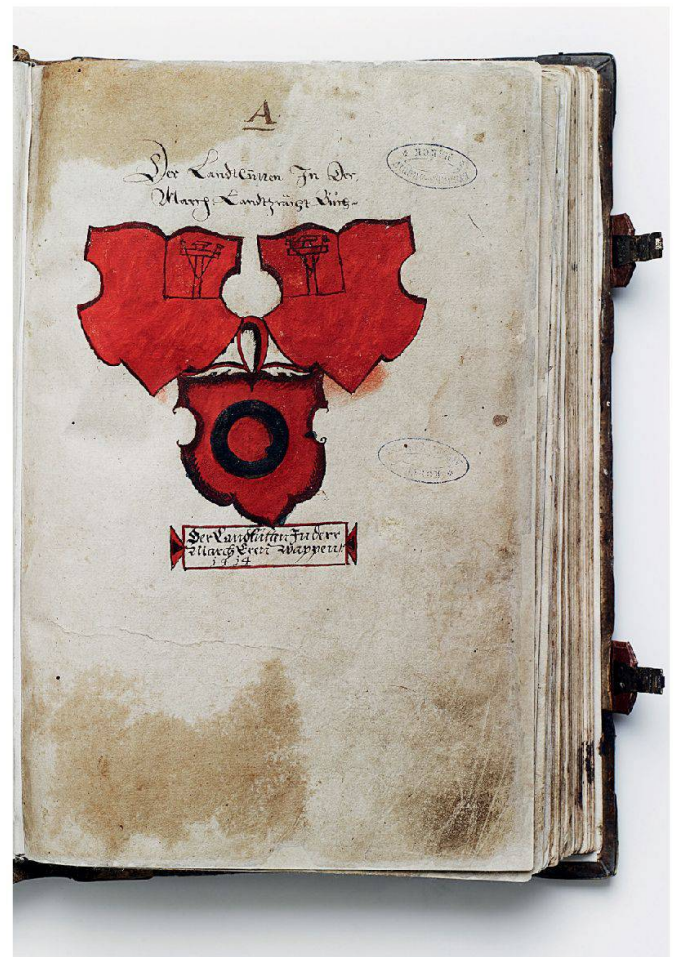 A
Der Landtlüten In Der
March Landtzrächt Buch
Der Landtlütan In derr
March Eren Wappen
1614